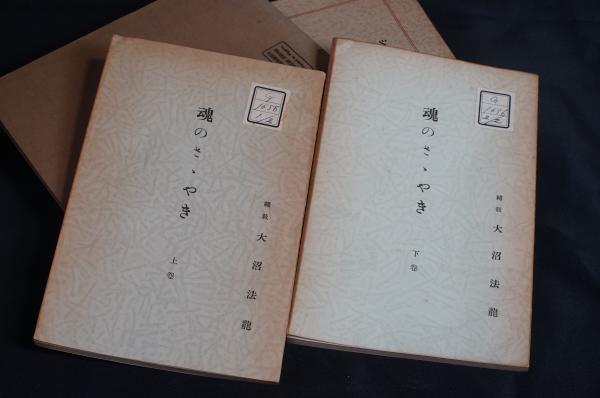 魂のさゝやき
上巻
大沼法龍
G
1656
1/2
魂のさゝやき
下巻
大沼法龍
G
1656
2/2